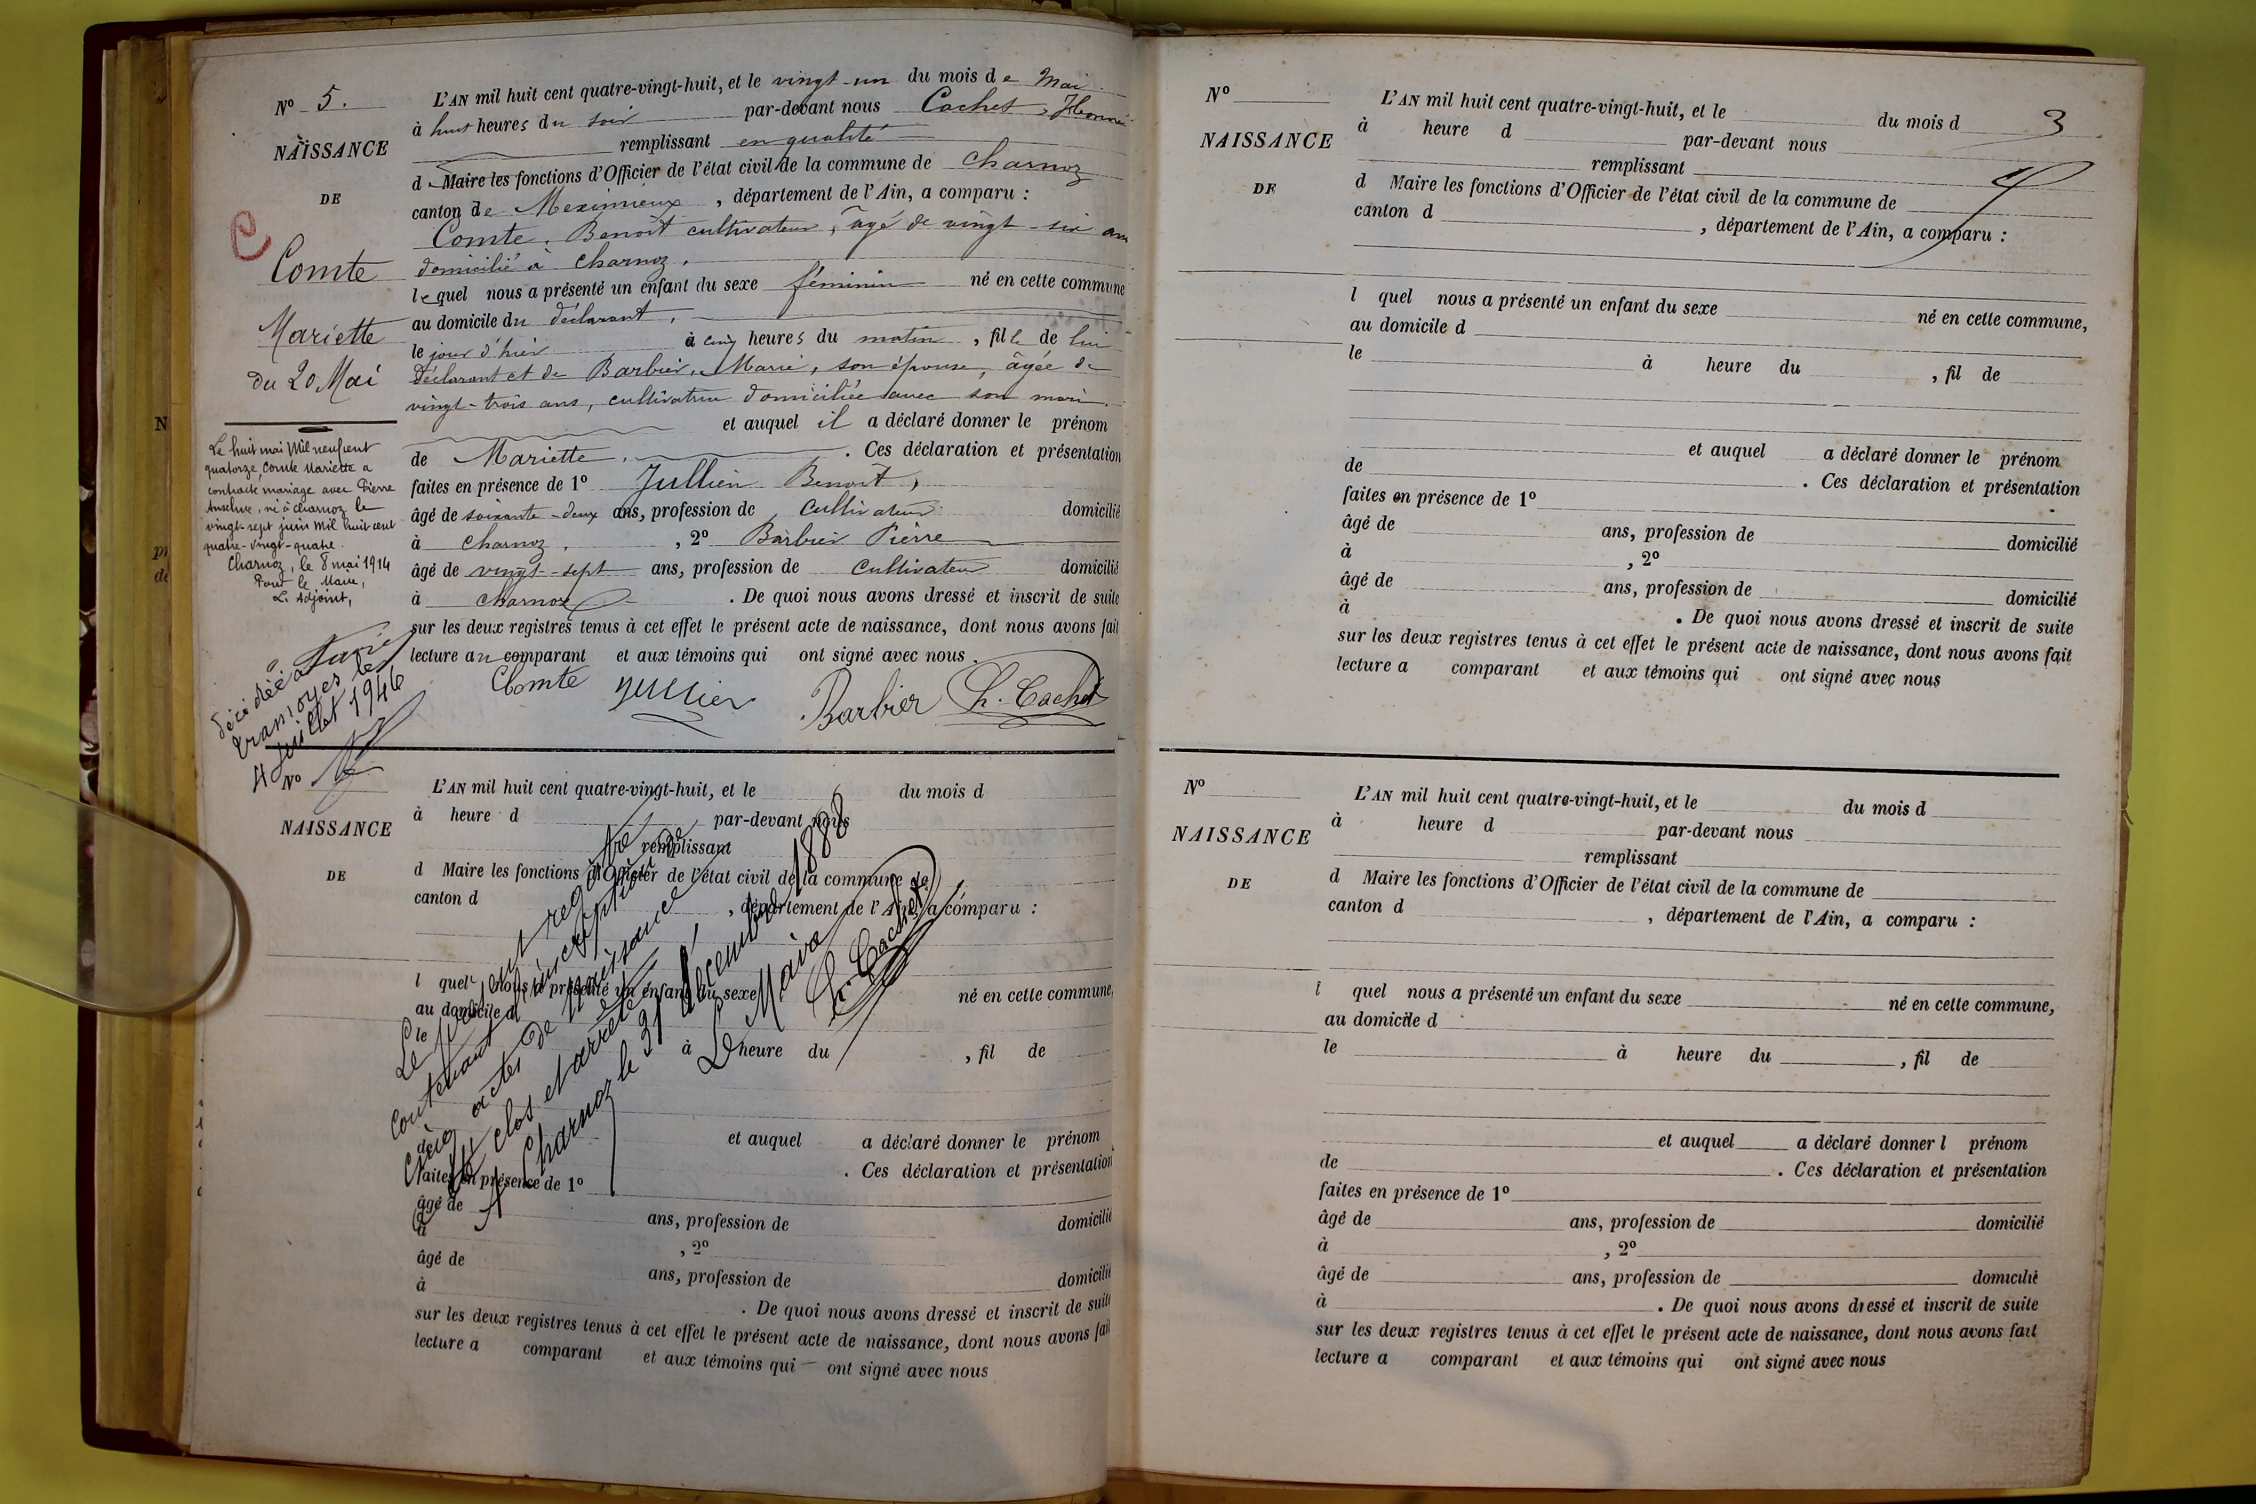 N° 5.
NAISSANCE
DE
Comte
Mariette
du 20 Mai
Le huit mai Mil neuf cent
quatorze, Comte Mariette a
contracté mariage avec Pierre
Anselme, né à Charnoz le
vingt-sept juin mil huit cent
quatre-vingt-quatre.
Charnoz, le 8 mai 1914
Pour le Maire,
L'Adjoint,
décédée à
Tramoyes le
4 Juillet 1946
L'AN mil huit cent quatre-vingt-huit, et le vingt-un du mois de Mai
à huit heures du soir par-devant nous Cachet, Honoré
remplissant en qualité
d Maire les fonctions d'Officier de l'état civil de la commune de Charnoz
canton de Meximieux, département de l'Ain, a comparu :
Comte, Benoît cultivateur, âgé de vingt-six ans
domicilié à Charnoz,
lequel nous a présenté un enfant du sexe féminin né en cette commune
au domicile du déclarant,
le jour d'hier à cinq heures du matin, fille de lui
déclarant et de Barbier, Marie, son épouse, âgée de
vingt-trois ans, cultivatrice domiciliée avec son mari.
et auquel il a déclaré donner le prénom
de Mariette. . Ces déclaration et présentation
faites en présence de 1° Jullien Benoît,
âgé de soixante-deux ans, profession de cultivateur domicilié
à Charnoz, , 2° Barbier Pierre
âgé de vingt-sept ans, profession de cultivateur domicilié
à Charnoz . De quoi nous avons dressé et inscrit de suite
sur les deux registres tenus à cet effet le présent acte de naissance, dont nous avons fait
lecture au comparant et aux témoins qui ont signé avec nous.
Comte Jullien Barbier h. Cachet
N°
NAISSANCE
DE
L'AN mil huit cent quatre-vingt-huit, et le du mois d
à heure d par-devant nous
remplissant
d Maire les fonctions d'Officier de l'état civil de la commune de
canton d , département de l'Ain, a comparu :
l quel nous a présenté un enfant du sexe né en cette commune,
au domicile d
le à heure du , fil de
et auquel a déclaré donner le prénom
de . Ces déclaration et présentation
faites en présence de 1°
âgé de ans, profession de domicilié
à , 2°
âgé de ans, profession de domicilié
à . De quoi nous avons dressé et inscrit de suite
sur les deux registres tenus à cet effet le présent acte de naissance, dont nous avons fait
lecture a comparant et aux témoins qui ont signé avec nous
Le présent registre
contenant l'inscription de
cinq actes de naissance
clos et arrêté
Charnoz le 31 décembre 1888
Le Maire
h. Cachet
3
N°
NAISSANCE
DE
L'AN mil huit cent quatre-vingt-huit, et le du mois d
à heure d par-devant nous
remplissant
d Maire les fonctions d'Officier de l'état civil de la commune de
canton d , département de l'Ain, a comparu :
l quel nous a présenté un enfant du sexe né en cette commune,
au domicile d
le à heure du , fil de
et auquel a déclaré donner le prénom
de . Ces déclaration et présentation
faites en présence de 1°
âgé de ans, profession de domicilié
à , 2°
âgé de ans, profession de domicilié
à . De quoi nous avons dressé et inscrit de suite
sur les deux registres tenus à cet effet le présent acte de naissance, dont nous avons fait
lecture a comparant et aux témoins qui ont signé avec nous
N°
NAISSANCE
DE
L'AN mil huit cent quatre-vingt-huit, et le du mois d
à heure d par-devant nous
remplissant
d Maire les fonctions d'Officier de l'état civil de la commune de
canton d , département de l'Ain, a comparu :
l quel nous a présenté un enfant du sexe né en cette commune,
au domicile d
le à heure du , fil de
et auquel a déclaré donner l prénom
de . Ces déclaration et présentation
faites en présence de 1°
âgé de ans, profession de domicilié
à , 2°
âgé de ans, profession de domicilié
à . De quoi nous avons dressé et inscrit de suite
sur les deux registres tenus à cet effet le présent acte de naissance, dont nous avons fait
lecture a comparant et aux témoins qui ont signé avec nous